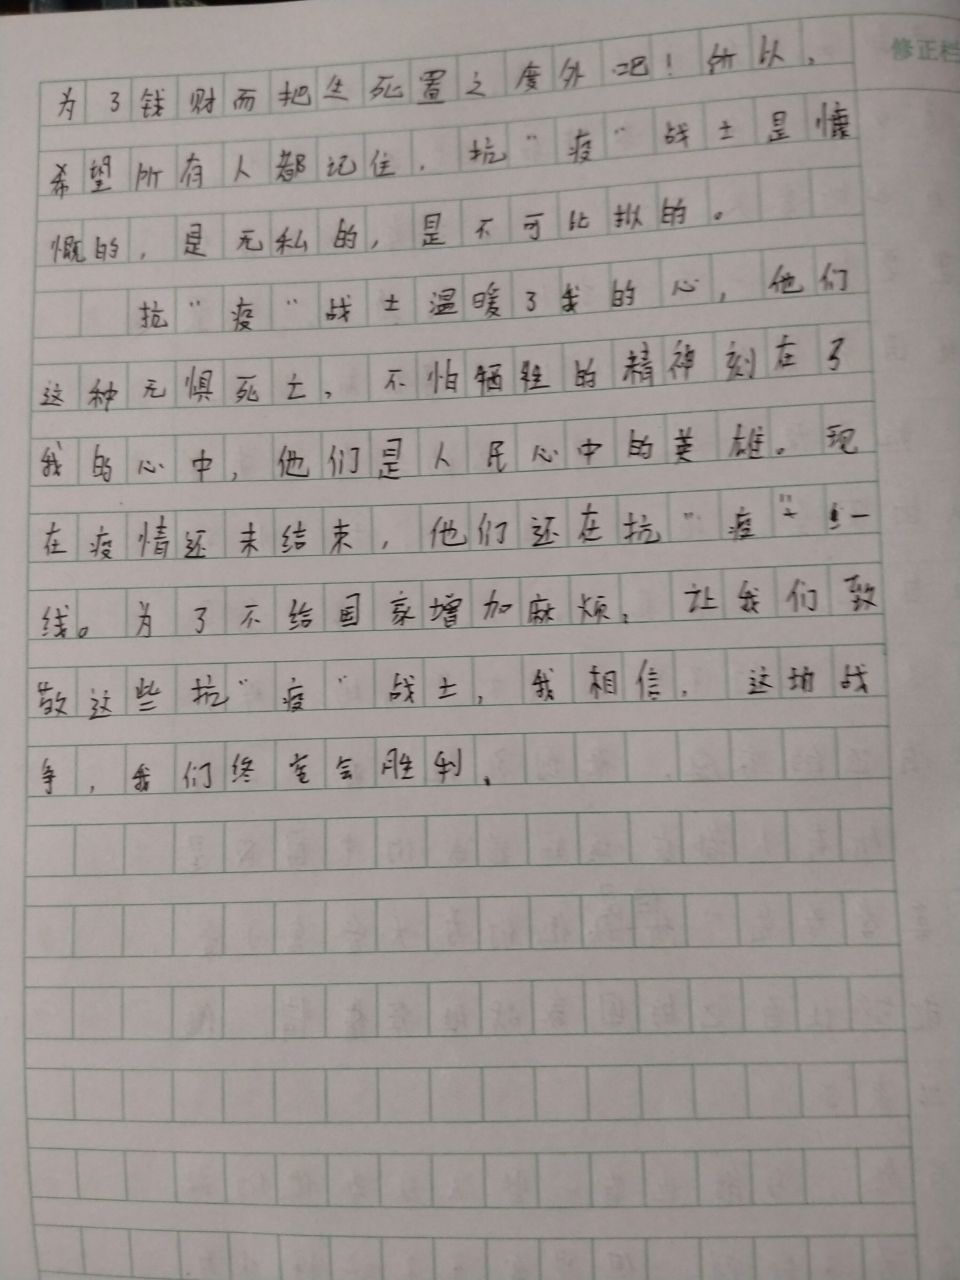 修正栏
为了钱财而把生死置之度外吧！所以，
希望所有人都记住，抗“疫”战士是慷
慨的，是无私的，是不可比拟的。
抗“疫”战士温暖了我的心，他们
这种无惧死亡，不怕牺牲的精神刻在了
我的心中，他们是人民心中的英雄。现
在疫情还未结束，他们还在抗“疫”一
线。为了不给国家增加麻烦，让我们致
敬这些抗“疫”战士，我相信，这场战
争，我们终究会胜利、